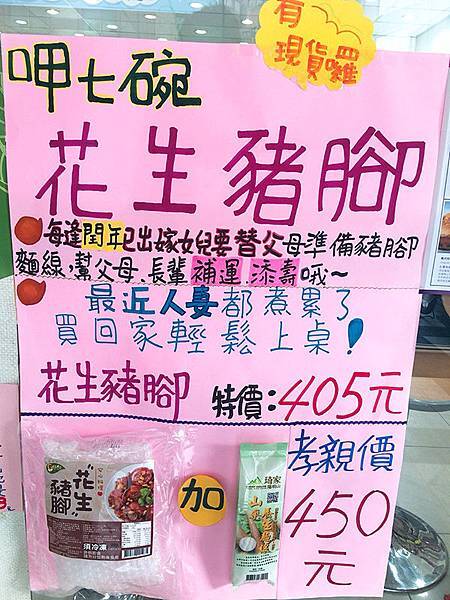 有
現貨囉
呷七碗
花生豬腳
每逢閏年已出嫁女兒要替父母準備豬腳
麵線,幫父母、長輩補運、添壽哦~
最近人妻都煮累了
買回家輕鬆上桌!
花生豬腳 特價:405元
孝親價
450
元
加
花生
豬腳
須冷凍
琦家